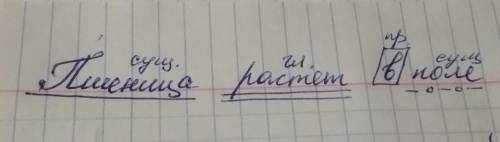 пр.
сущ. гл. сущ
Пшеница растёт в поле